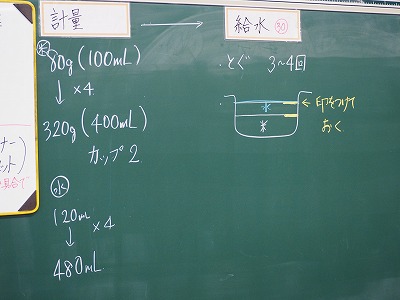 計量
給水 30
米
80g(100mL)
↓ ×4
320g(400mL)
カップ2
水
120mL
↓ ×4
480mL
・とぐ 3~4回
水
米
←印をつけて
おく